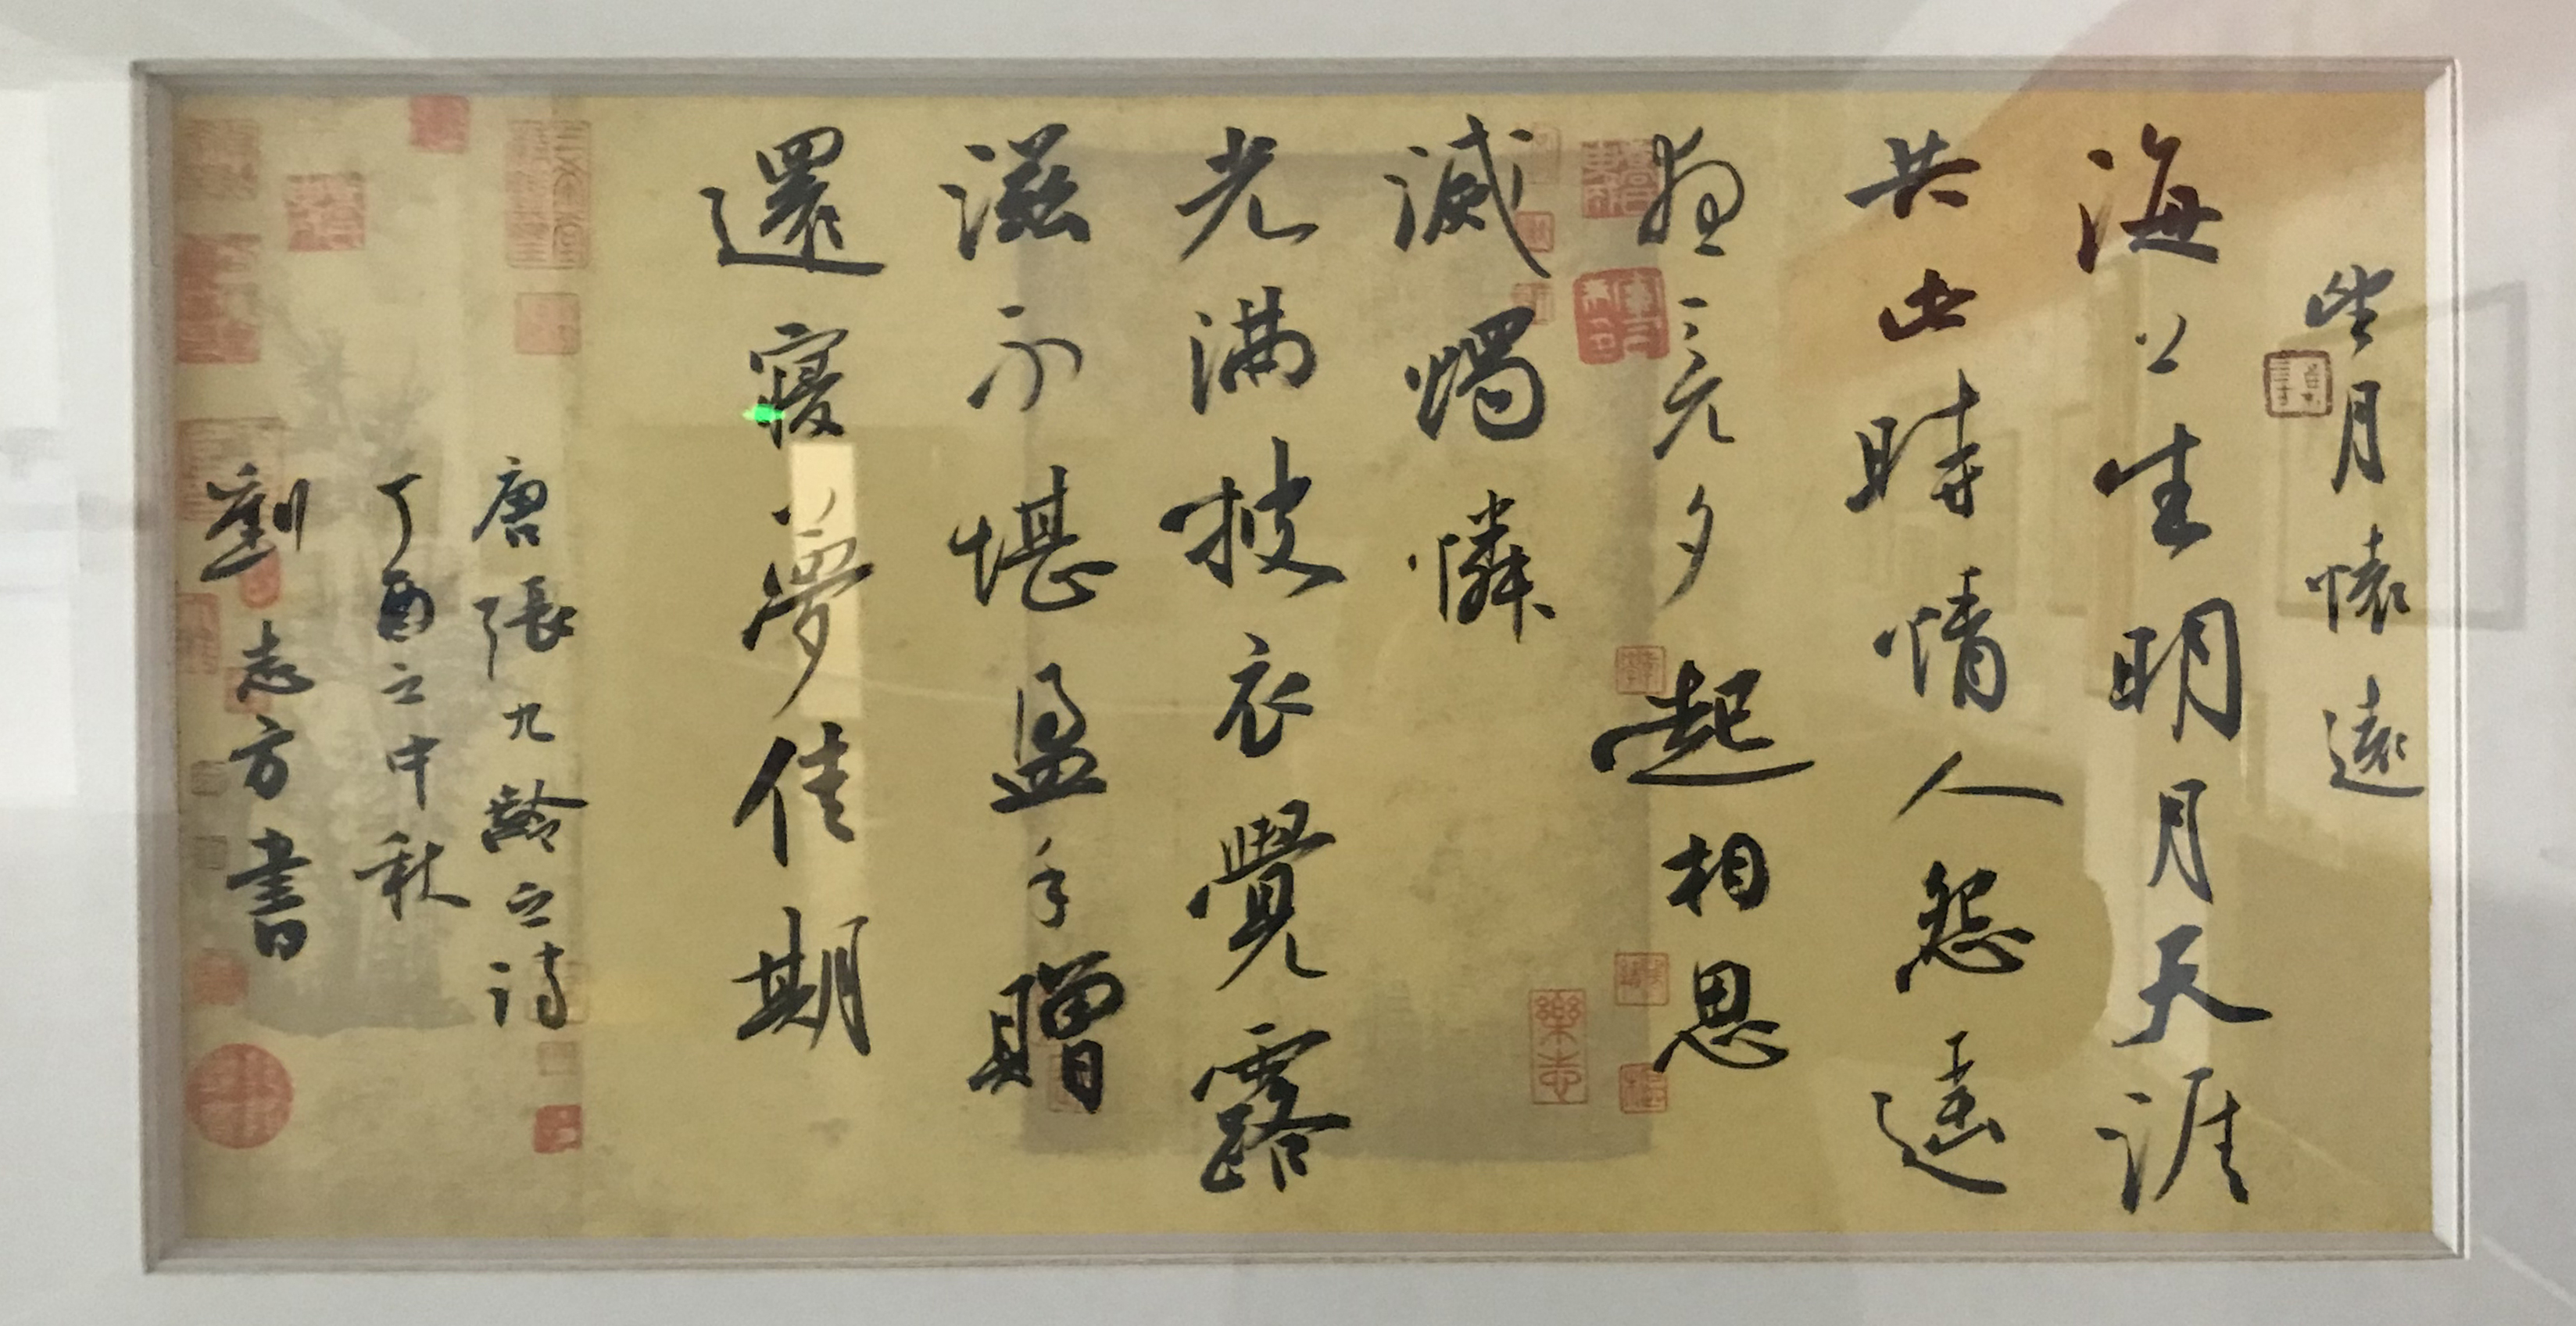 望月懷遠
海上生明月天涯
共此時情人怨遥
夜竟夕起相思
滅燭憐
光滿披衣覺露
滋不堪盈手贈
還寢夢佳期
唐張九齡之詩
丁酉之中秋
劉志方書
樂志